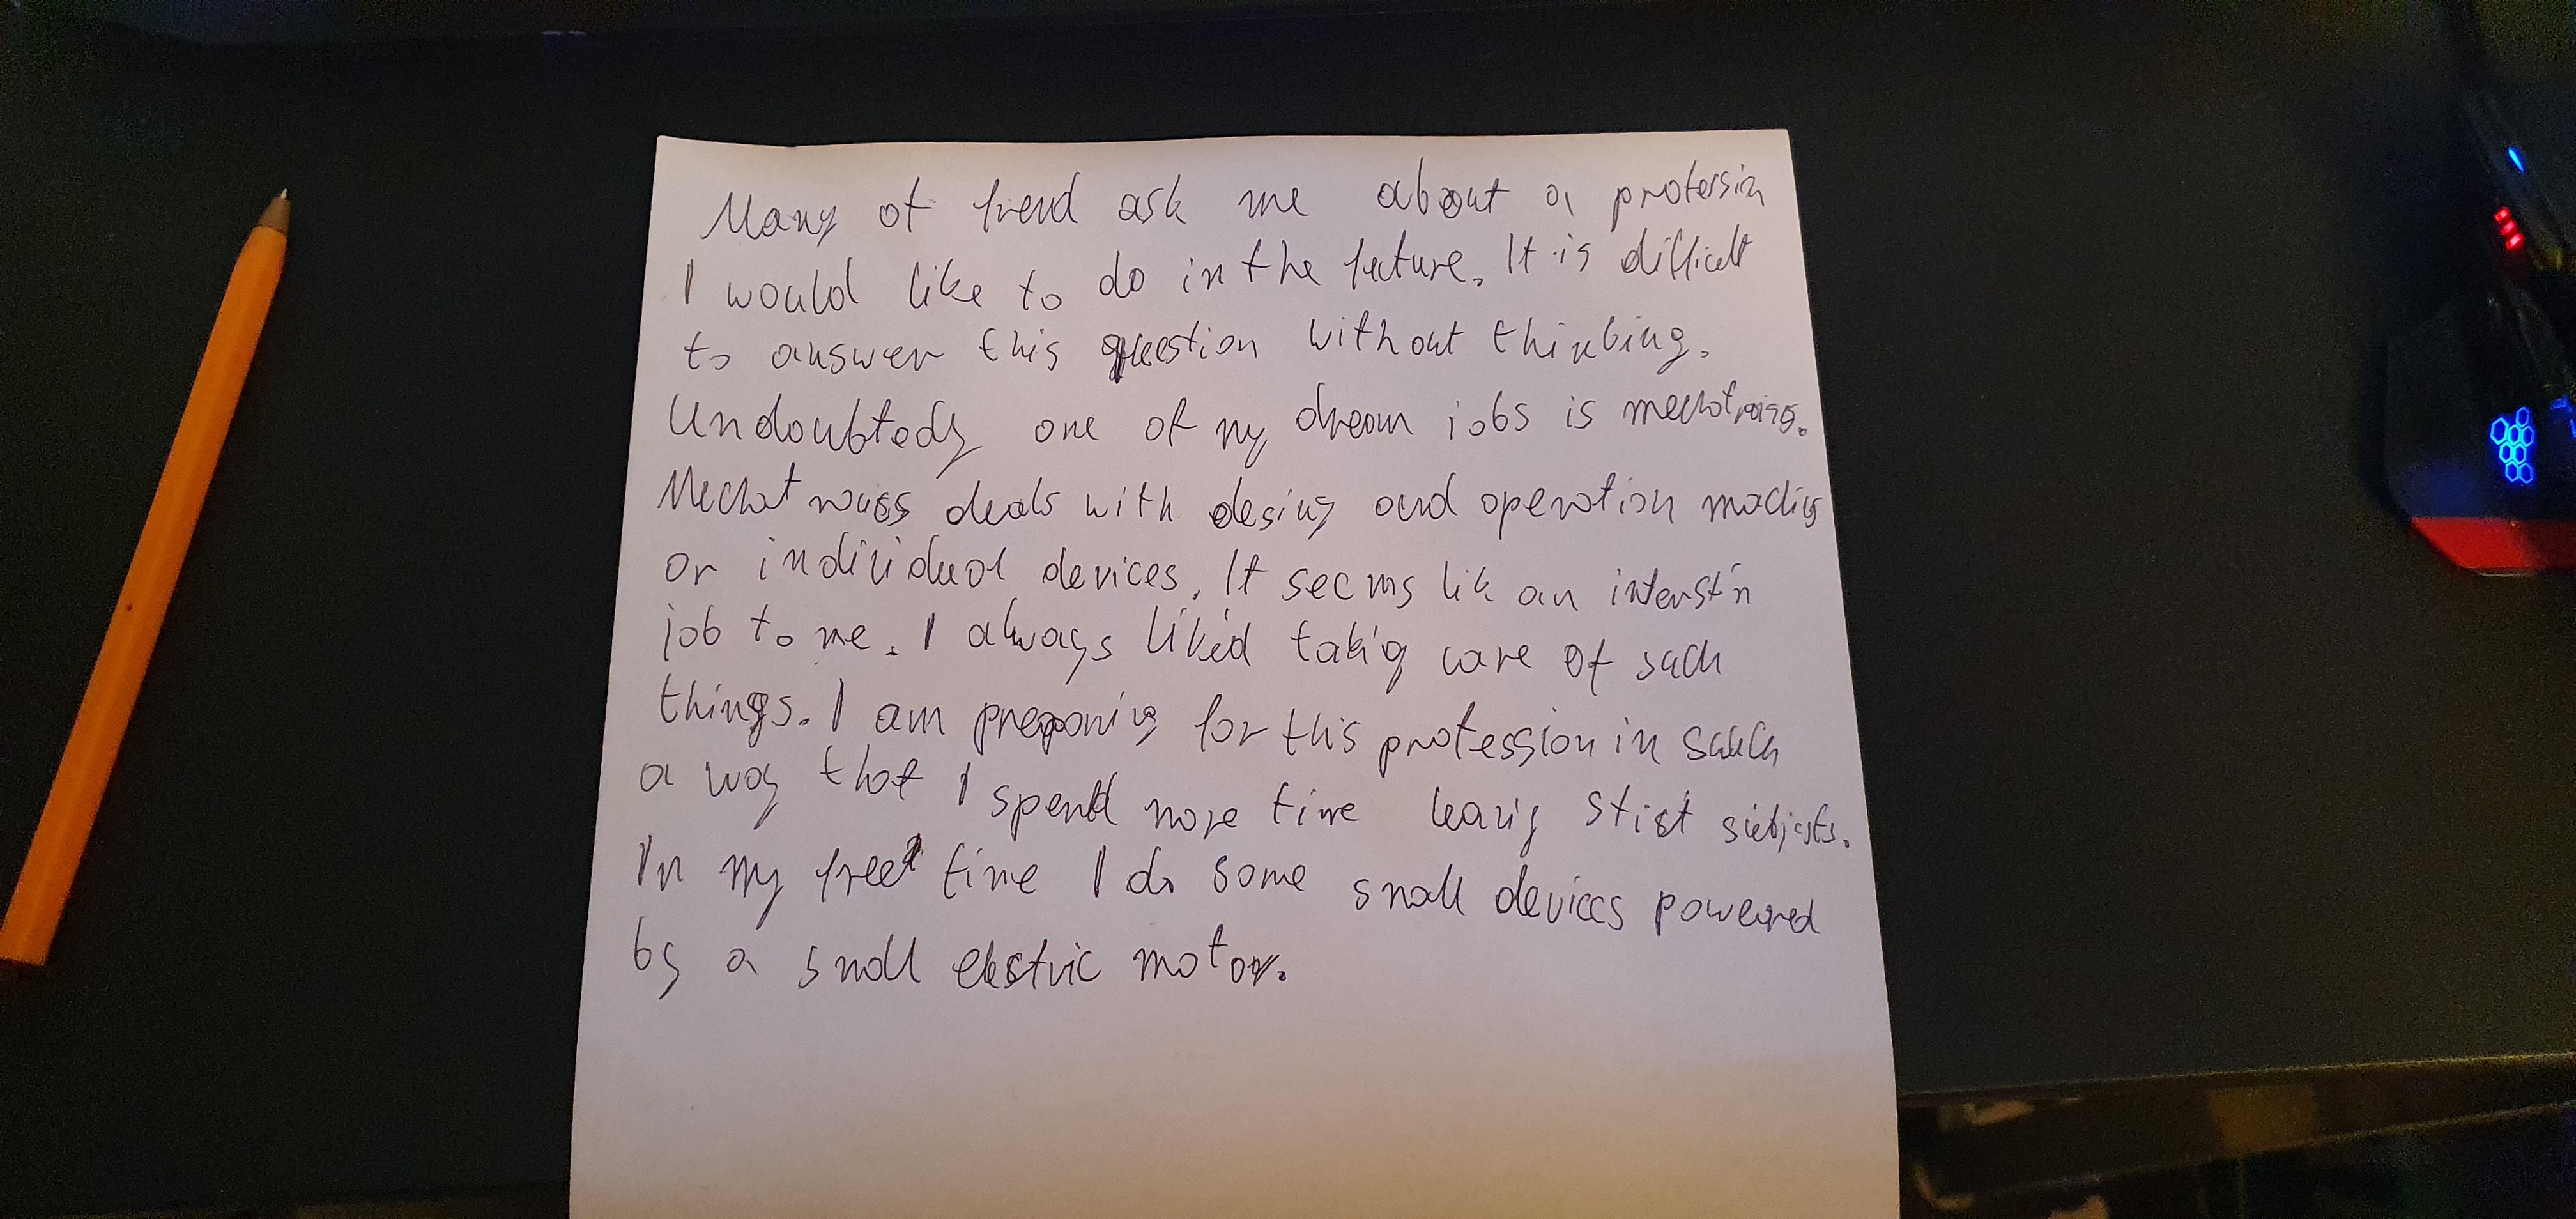 Many of frend ask me about a profession
I would like to do in the future. It is difficult
to answer this question without thinking.
Undoubtedly one of my dream jobs is mechatronics.
Mechatronics deals with desing and operation machins
or individual devices. It seems lik an interstin
job to me. I always liked taking care of such
things. I am preparing for this profession in such
a way that I spend more time learing stict subjects.
In my free time I do some small devices powered
by a small electric motor.